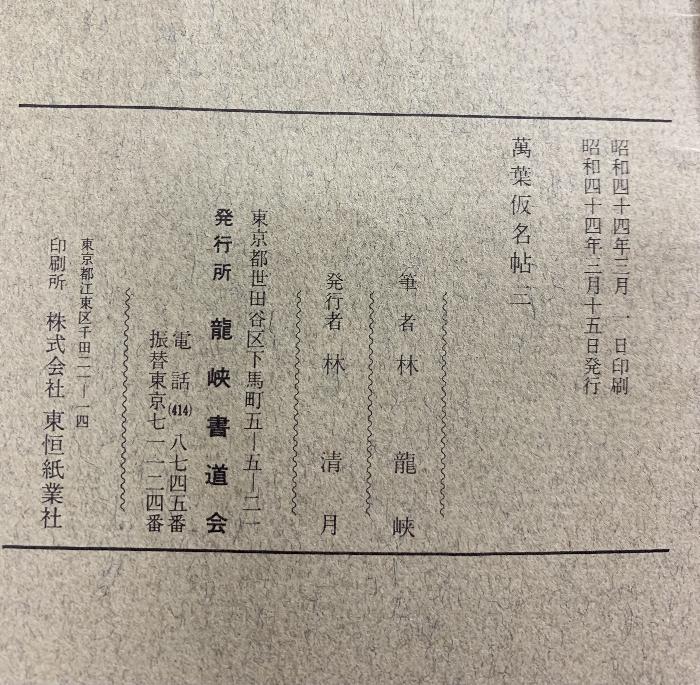 昭和四十四年二月 一 日印刷
昭和四十四年二月十五日発行
萬葉仮名帖 三
筆者 林 龍峡
発行者 林 清月
東京都世田谷区下馬町五―五―二一
発行所 龍峡書道会
電話(414)八七四五番
振替東京七一一二四番
東京都江東区千田二一―一四
印刷所 株式会社 東恒紙業社